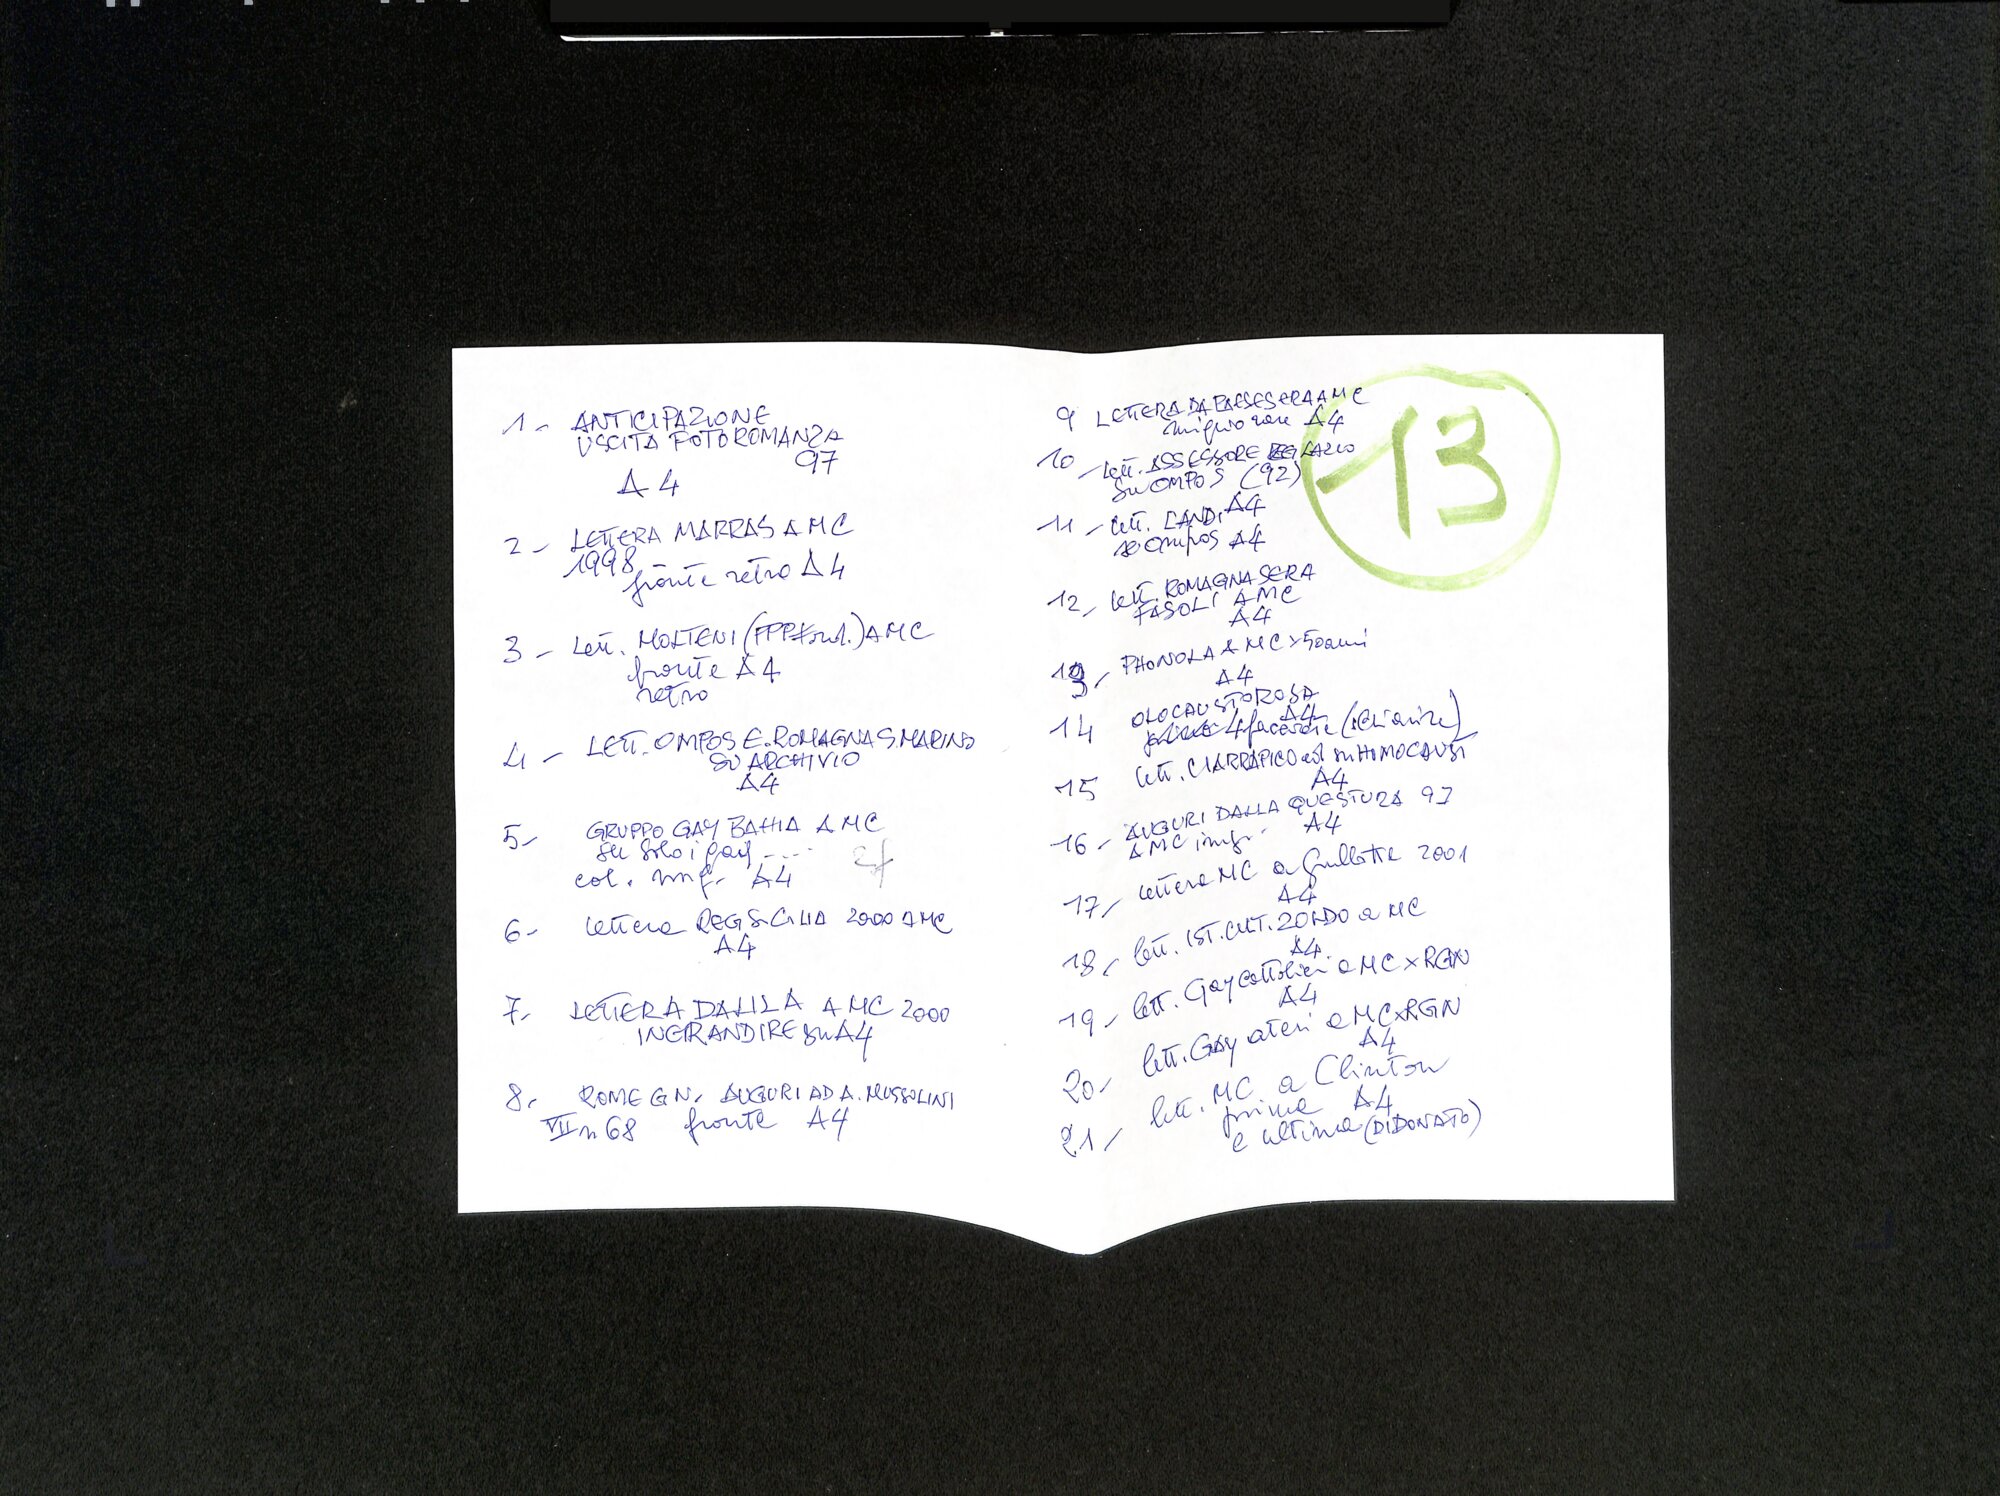 1- ANTICIPAZIONE
USCITA FOTOROMANZA
97
A4
2- LETTERA MARRAS A MC
1998
fronte retro A4
3- Lett. MOLTENI ( ) A MC
fronte A4
retro
4- LETT. OMPOS E. ROMAGNA S. MARINO
SU ARCHIVIO
A4
5- GRUPPO GAY BAHIA A MC
su solo i gay ....
col. A4
6- lettera REG SICILIA 2000 A MC
A4
7- LETTERA DALILA A MC 2000
INGRANDIRE su A4
8- ROME GN. AUGURI AD A. MUSSOLINI
VII n 68 fronte A4
13
9 LETTERA DA PAESE SERA A MC
A4
10- lett. ASSESSORE REG LAZIO
su OMPOS (92)
A4
11- lett. LANDI
su Ompos A4
12- lett. ROMAGNA SERA
FASOLI A MC
A4
13- PHONOLA A MC x 50 anni
A4
14 OLOCAUSTO ROSA
A4
4 facciate
15 lett. CIARRAPICO su HOMOCAUST
A4
16- AUGURI DALLA QUESTURA 97
A MC A4
17- lettera MC a Gullotta 2001
A4
18- lett. IST. CULT. ZOLDO a MC
A4
19- lett. Gay cattolici a MC x RGN
A4
20- lett. Gay atei a MC x RGN
A4
21- lett. MC a Clinton
prima A4
e ultima (DI DONATO)